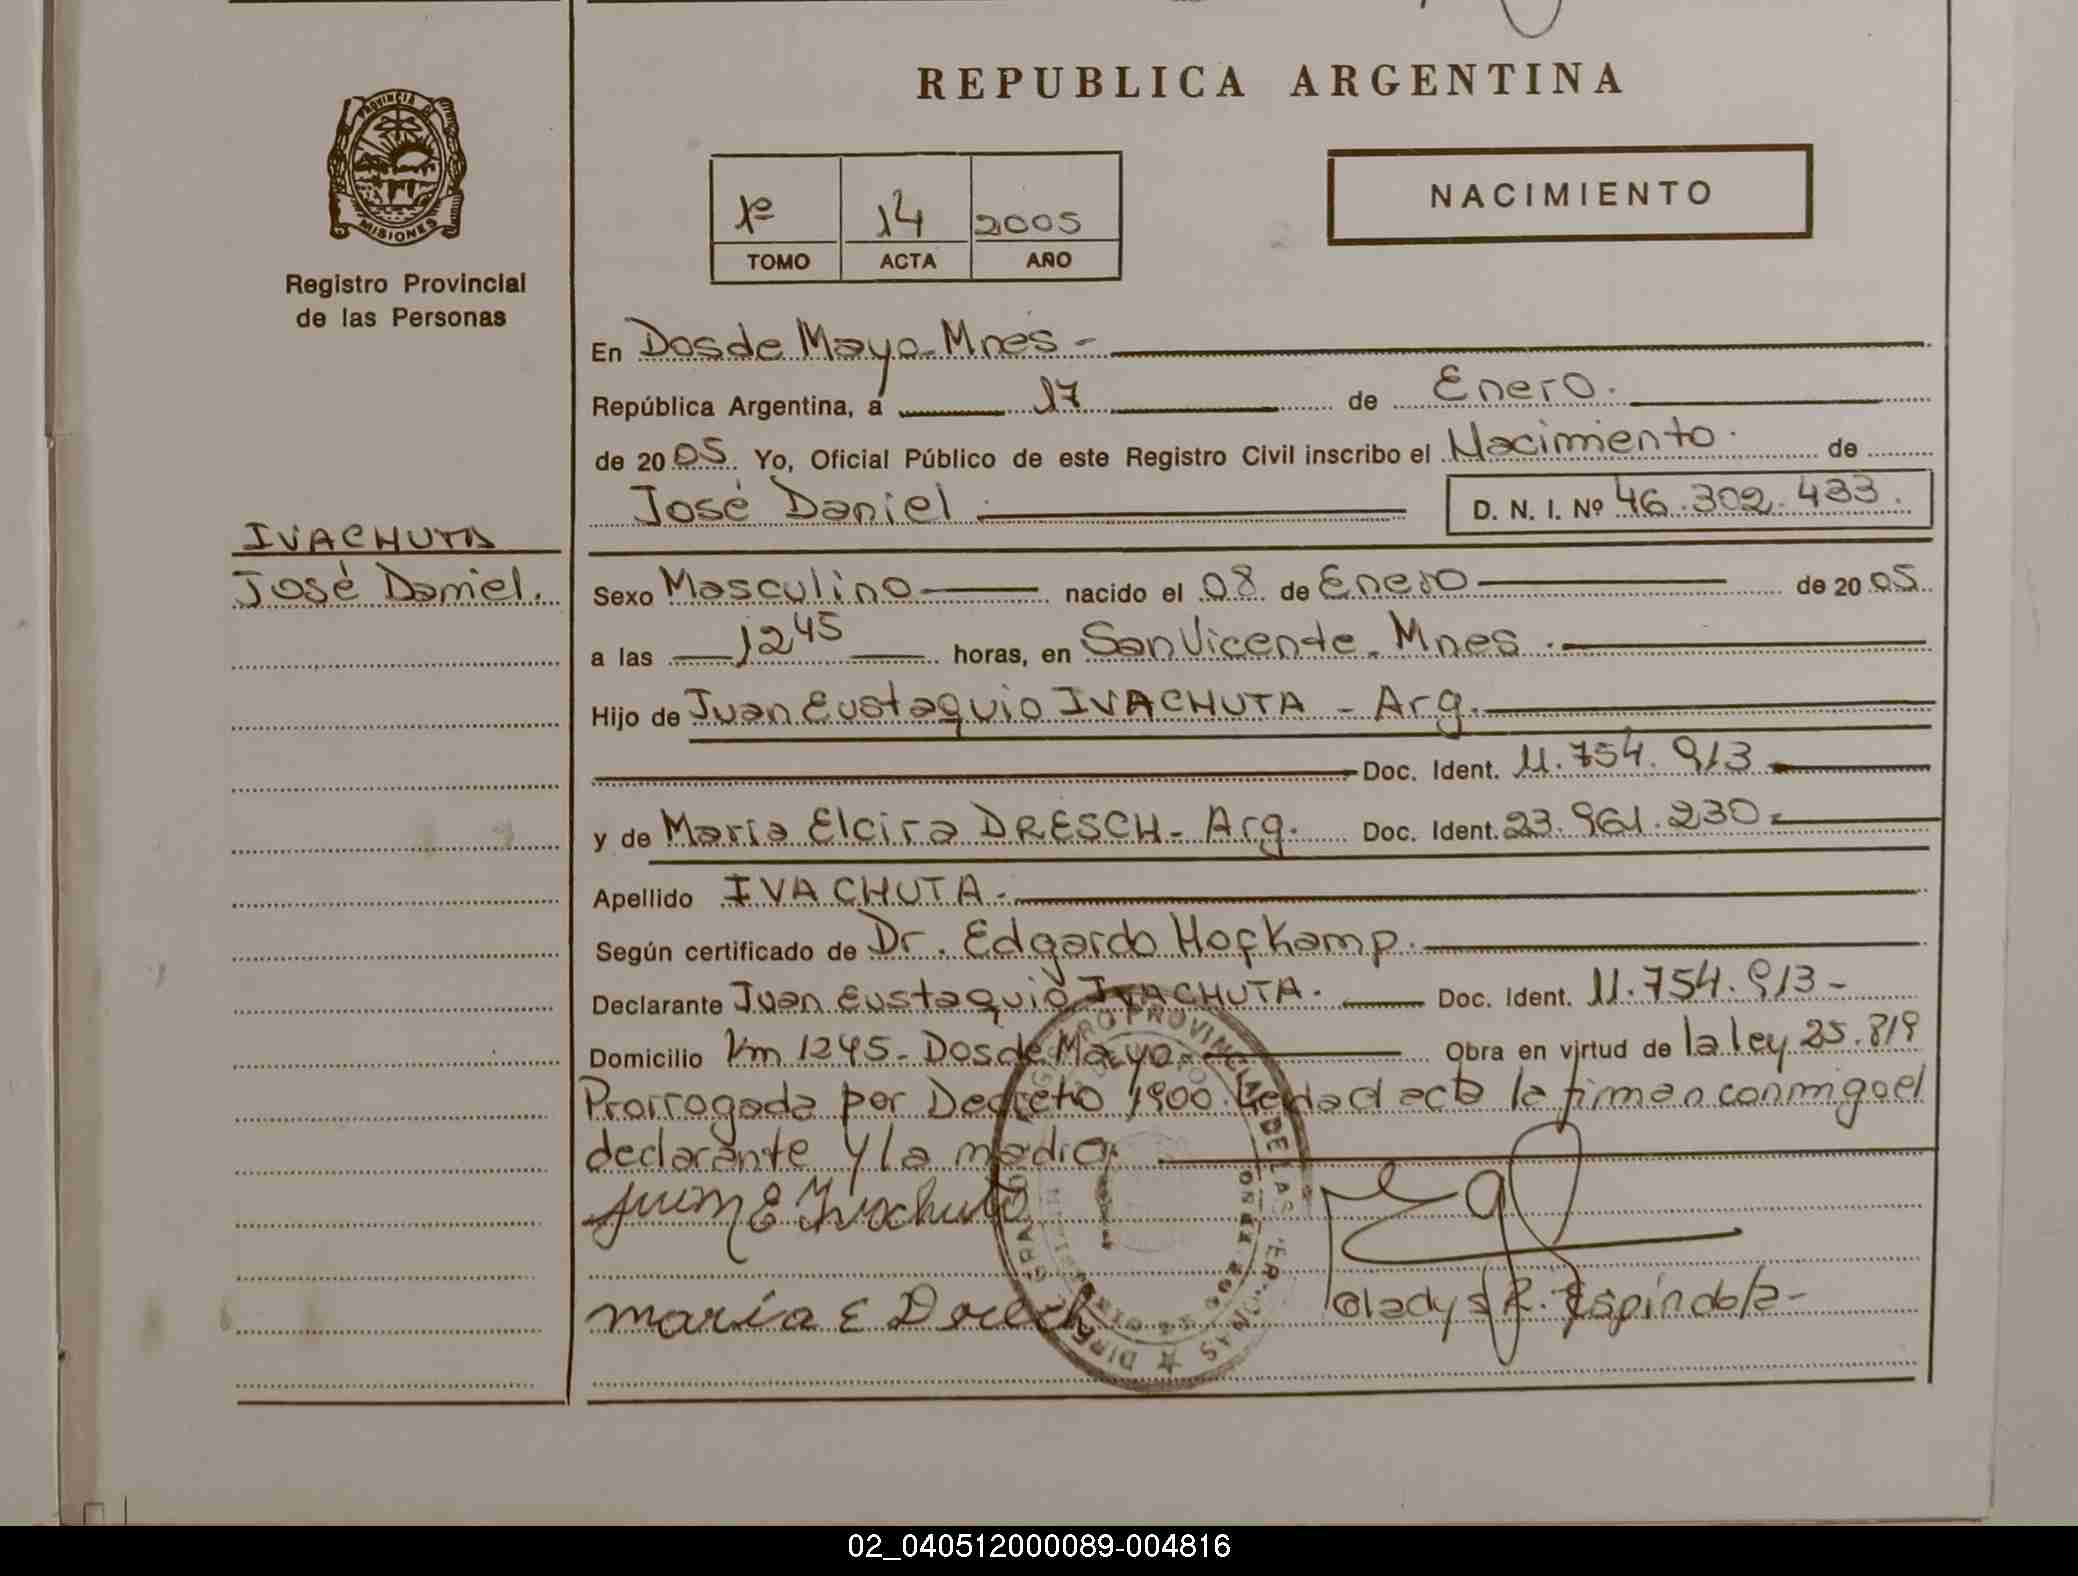 REPUBLICA ARGENTINA
PROVINCIA D
MISIONES
Registro Provincial
de las Personas
1º 14 2005
TOMO ACTA AÑO
NACIMIENTO
En Dos de Mayo - Mnes -
República Argentina, a 17 de Enero.
de 2005. Yo, Oficial Público de este Registro Civil inscribo el Nacimiento. de
José Daniel D. N. I. Nº 46.302.433.
IVACHUTA
José Daniel.
Sexo Masculino nacido el 08 de Enero de 2005.
a las 12 45 horas, en San Vicente - Mnes.
Hijo de Juan Eustaquio IVACHUTA - Arg.
Doc. Ident. 11.754.913
y de Maria Elcira DRESCH - Arg. Doc. Ident. 23.961.230
Apellido IVACHUTA.
Según certificado de Dr. Edgardo Hofkamp.
Declarante Juan Eustaquio IVACHUTA. Doc. Ident. 11.754.913 -
Domicilio Km 1245 - Dos de Mayo - Obra en virtud de la ley 25.819
Prorrogada por Decreto 1900. Leida el acta la firman conmigo el
declarante y la madre.
Juan E Ivachuta
maria E Dresch
Gladys R. Espindola -
02_040512000089-004816